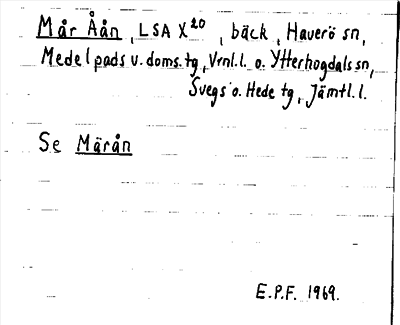 Mår Åån, LSA X20, bäck, Haverö sn,
Medelpads v. doms. tg, Vrnl. l. o. Ytterhogdals sn,
Svegs o. Hede tg, Jämtl. l.
Se Mårån
E.P.F. 1969.